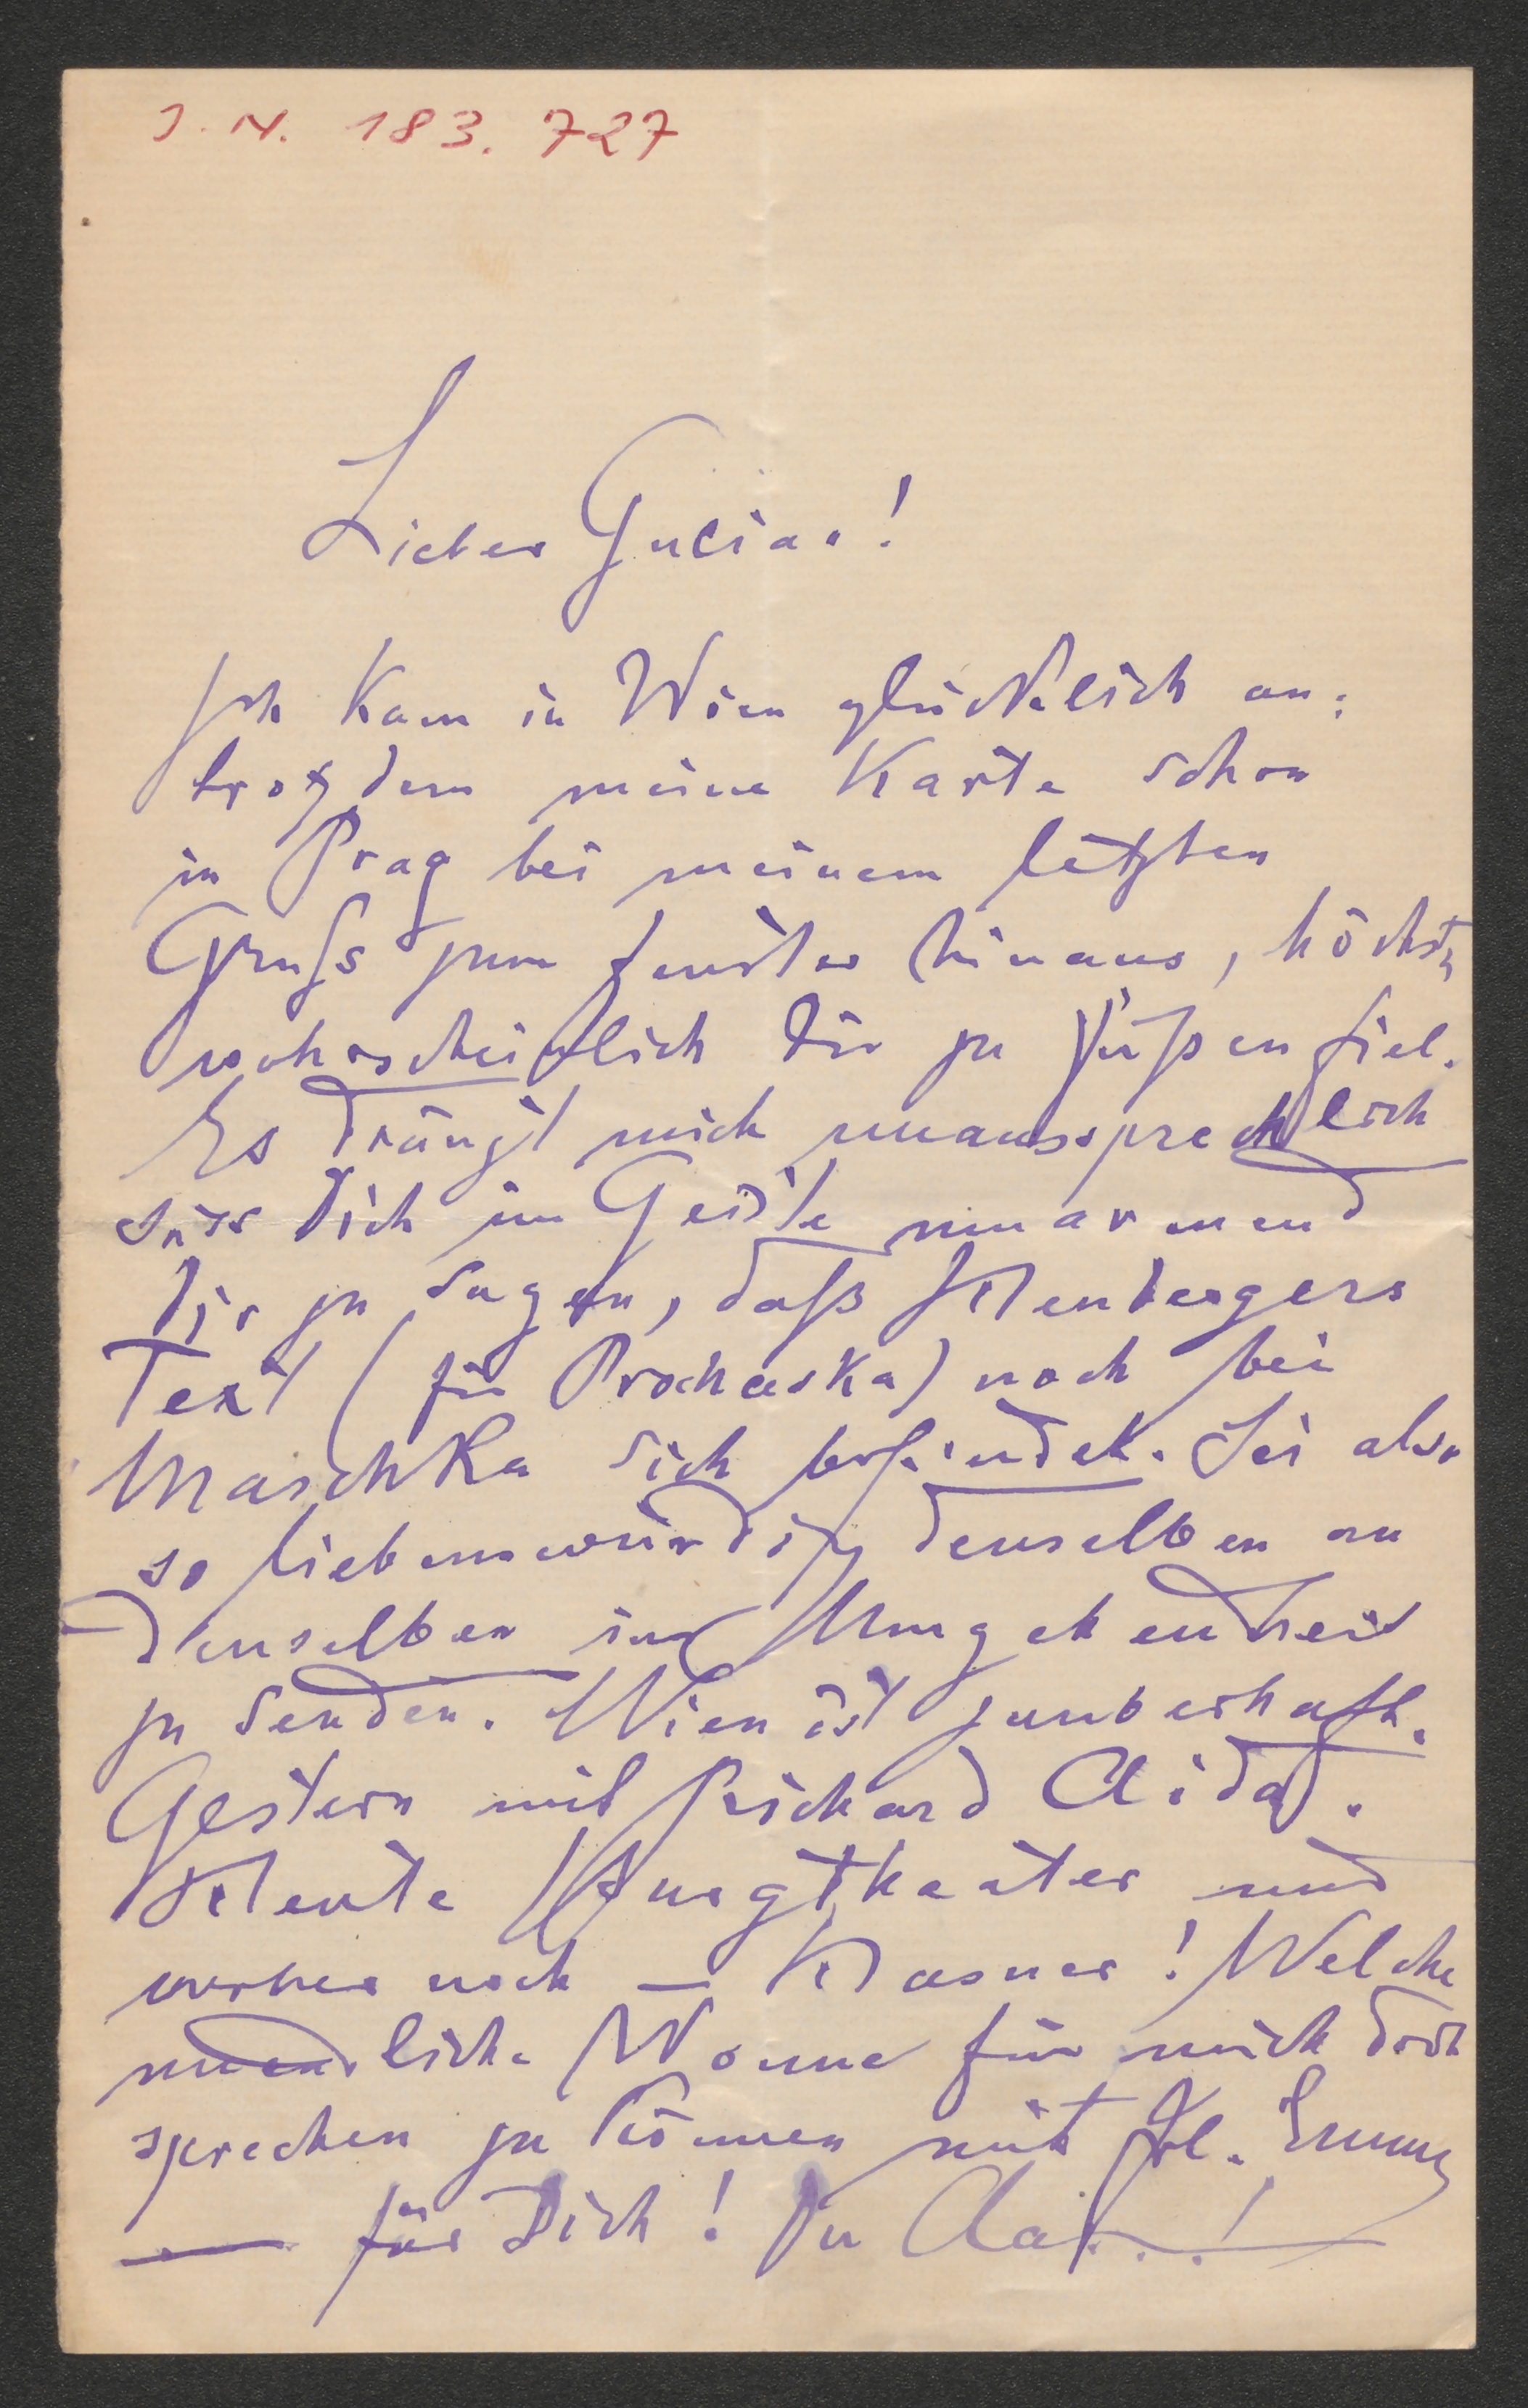 J. N. 183. 727
Lieber Gucias!
Ich kam in Wien glücklich an;
trotzdem meine Karte schon
in Prag bei meinem letzten
Gruß zum Fenster hinaus, höchst
wahrscheinlich Dir zu Füßen fiel.
Es drängt mich unaussprechlich
süss Dich im Geiste umarmend
Dir zu sagen, daß Hennbergers
Text (für Prochaska) noch bei
Maschka sich befindet. Sei also
so liebenswürdig denselben an
denselben in Umgehendheit
zu senden. Wien ist zauberhaft.
Gestern mit Richard Aida.
Heute Burgtheater und
vorher noch — Klasner! Welche
unendliche Wonne für mich dort
sprechen zu können mit Frl. Emmy
— für Dich! Du Aa...!